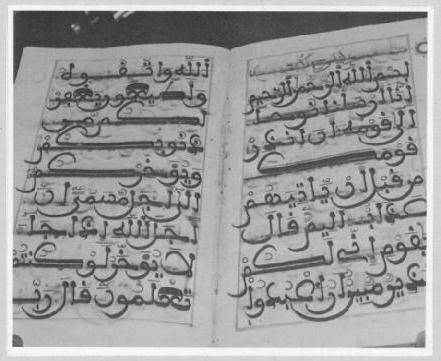 بسم الله الرحمن الرحيم
انا ارسلنا نوحا
الى قومه ان انذر
قومك
من قبل ان ياتيهم
عذاب اليم قال
يقوم اني لكم
نذير مبين ان اعبدوا
الله واتقوه
واطيعون يغفر
لكم من
ذنوبكم
ويوخركم
الى اجل مسمى ان
اجل الله اذا جا
لا يوخر لو كنتم
تعلمون قال رب